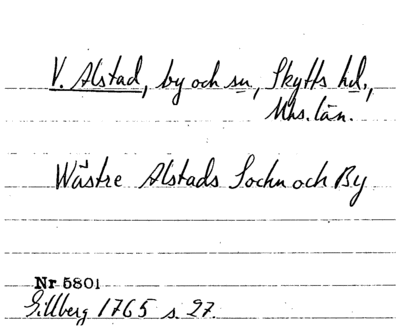 V. Alstad, by och sn, Skytts hd.,
Mhs. län.
Wästre Alstads Sockn och By
Nr 5801
Gillberg 1765 s. 27.